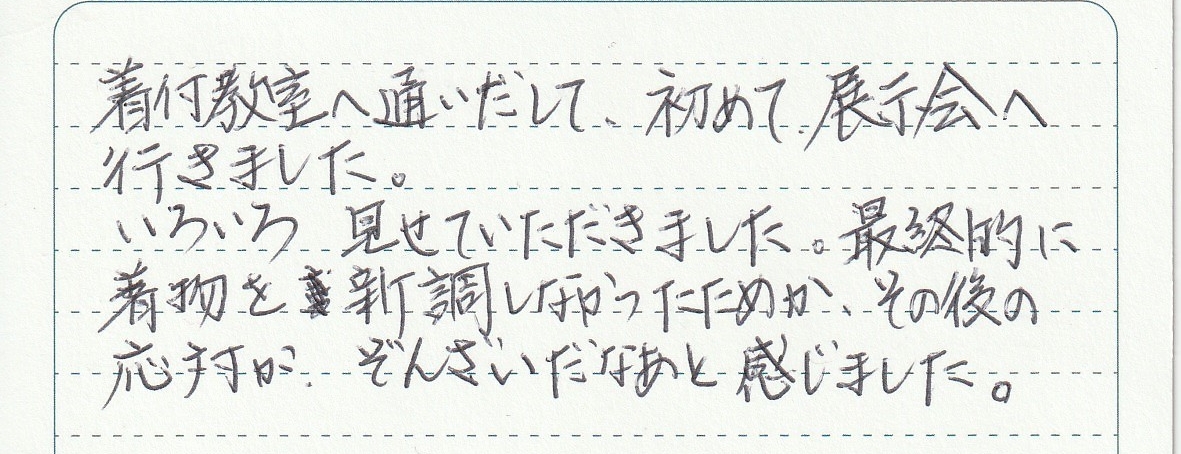 着付教室へ通いだして、初めて、展示会へ
行きました。
いろいろ 見せていただきました。最終的に
着物を新調しなかったためか、その後の
応対が、ぞんざいだなあと感じました。